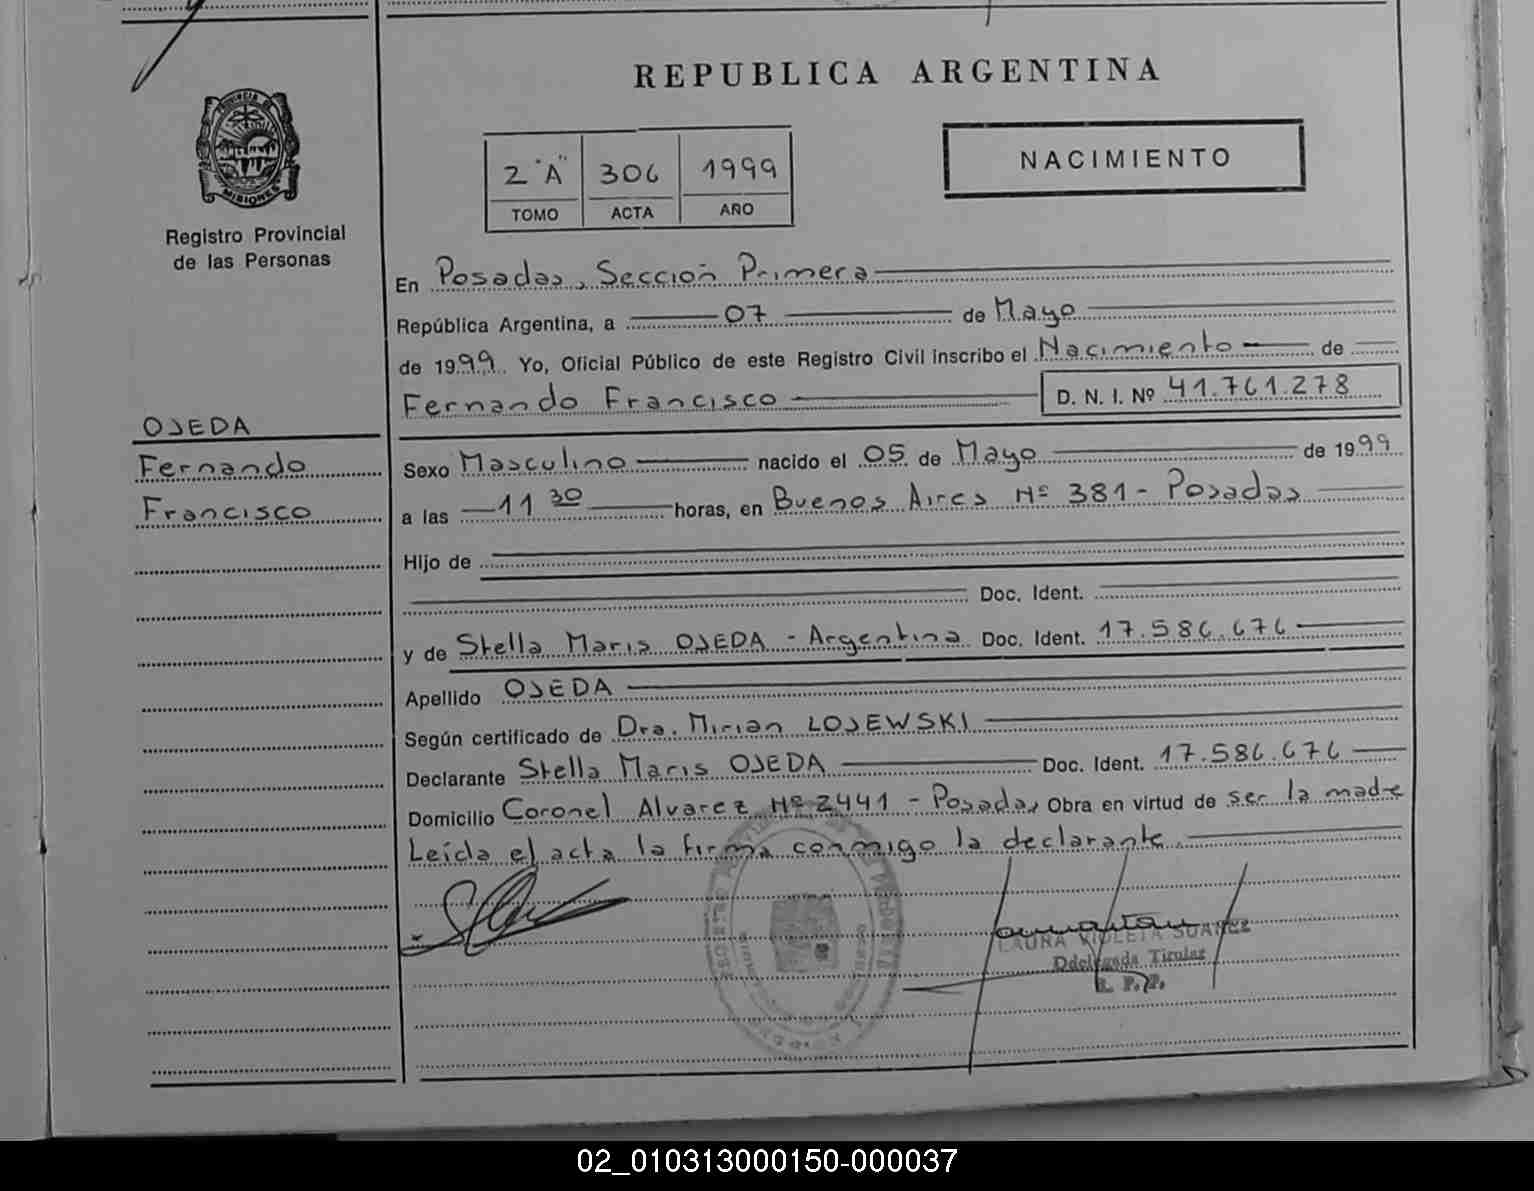 REPUBLICA ARGENTINA
PROVINCIA DE
MISIONES
Registro Provincial
de las Personas
2 "A" 306 1999
TOMO ACTA AÑO
NACIMIENTO
En Posadas, Sección Primera
República Argentina, a 07 de Mayo
de 1999. Yo, Oficial Público de este Registro Civil inscribo el Nacimiento de
Fernando Francisco D. N. I. Nº 41.761.278
OJEDA
Fernando
Francisco
Sexo Masculino nacido el 05 de Mayo de 1999
a las 11 30 horas, en Buenos Aires Nº 381 - Posadas
Hijo de
Doc. Ident.
y de Stella Maris OJEDA - Argentina Doc. Ident. 17.586.676
Apellido OJEDA
Según certificado de Dra. Mirian LOJEWSKI
Declarante Stella Maris OJEDA Doc. Ident. 17.586.676
Domicilio Coronel Alvarez Nº 2441 - Posadas Obra en virtud de ser la madre
Leída el acta la firma conmigo la declarante.
LAURA VIOLETA SUAREZ
Ddelegada Titular
R. P. P.
02_010313000150-000037